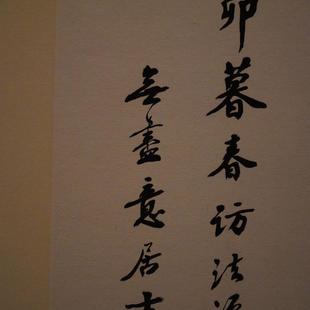 卯暮春访法源
無盡意居士